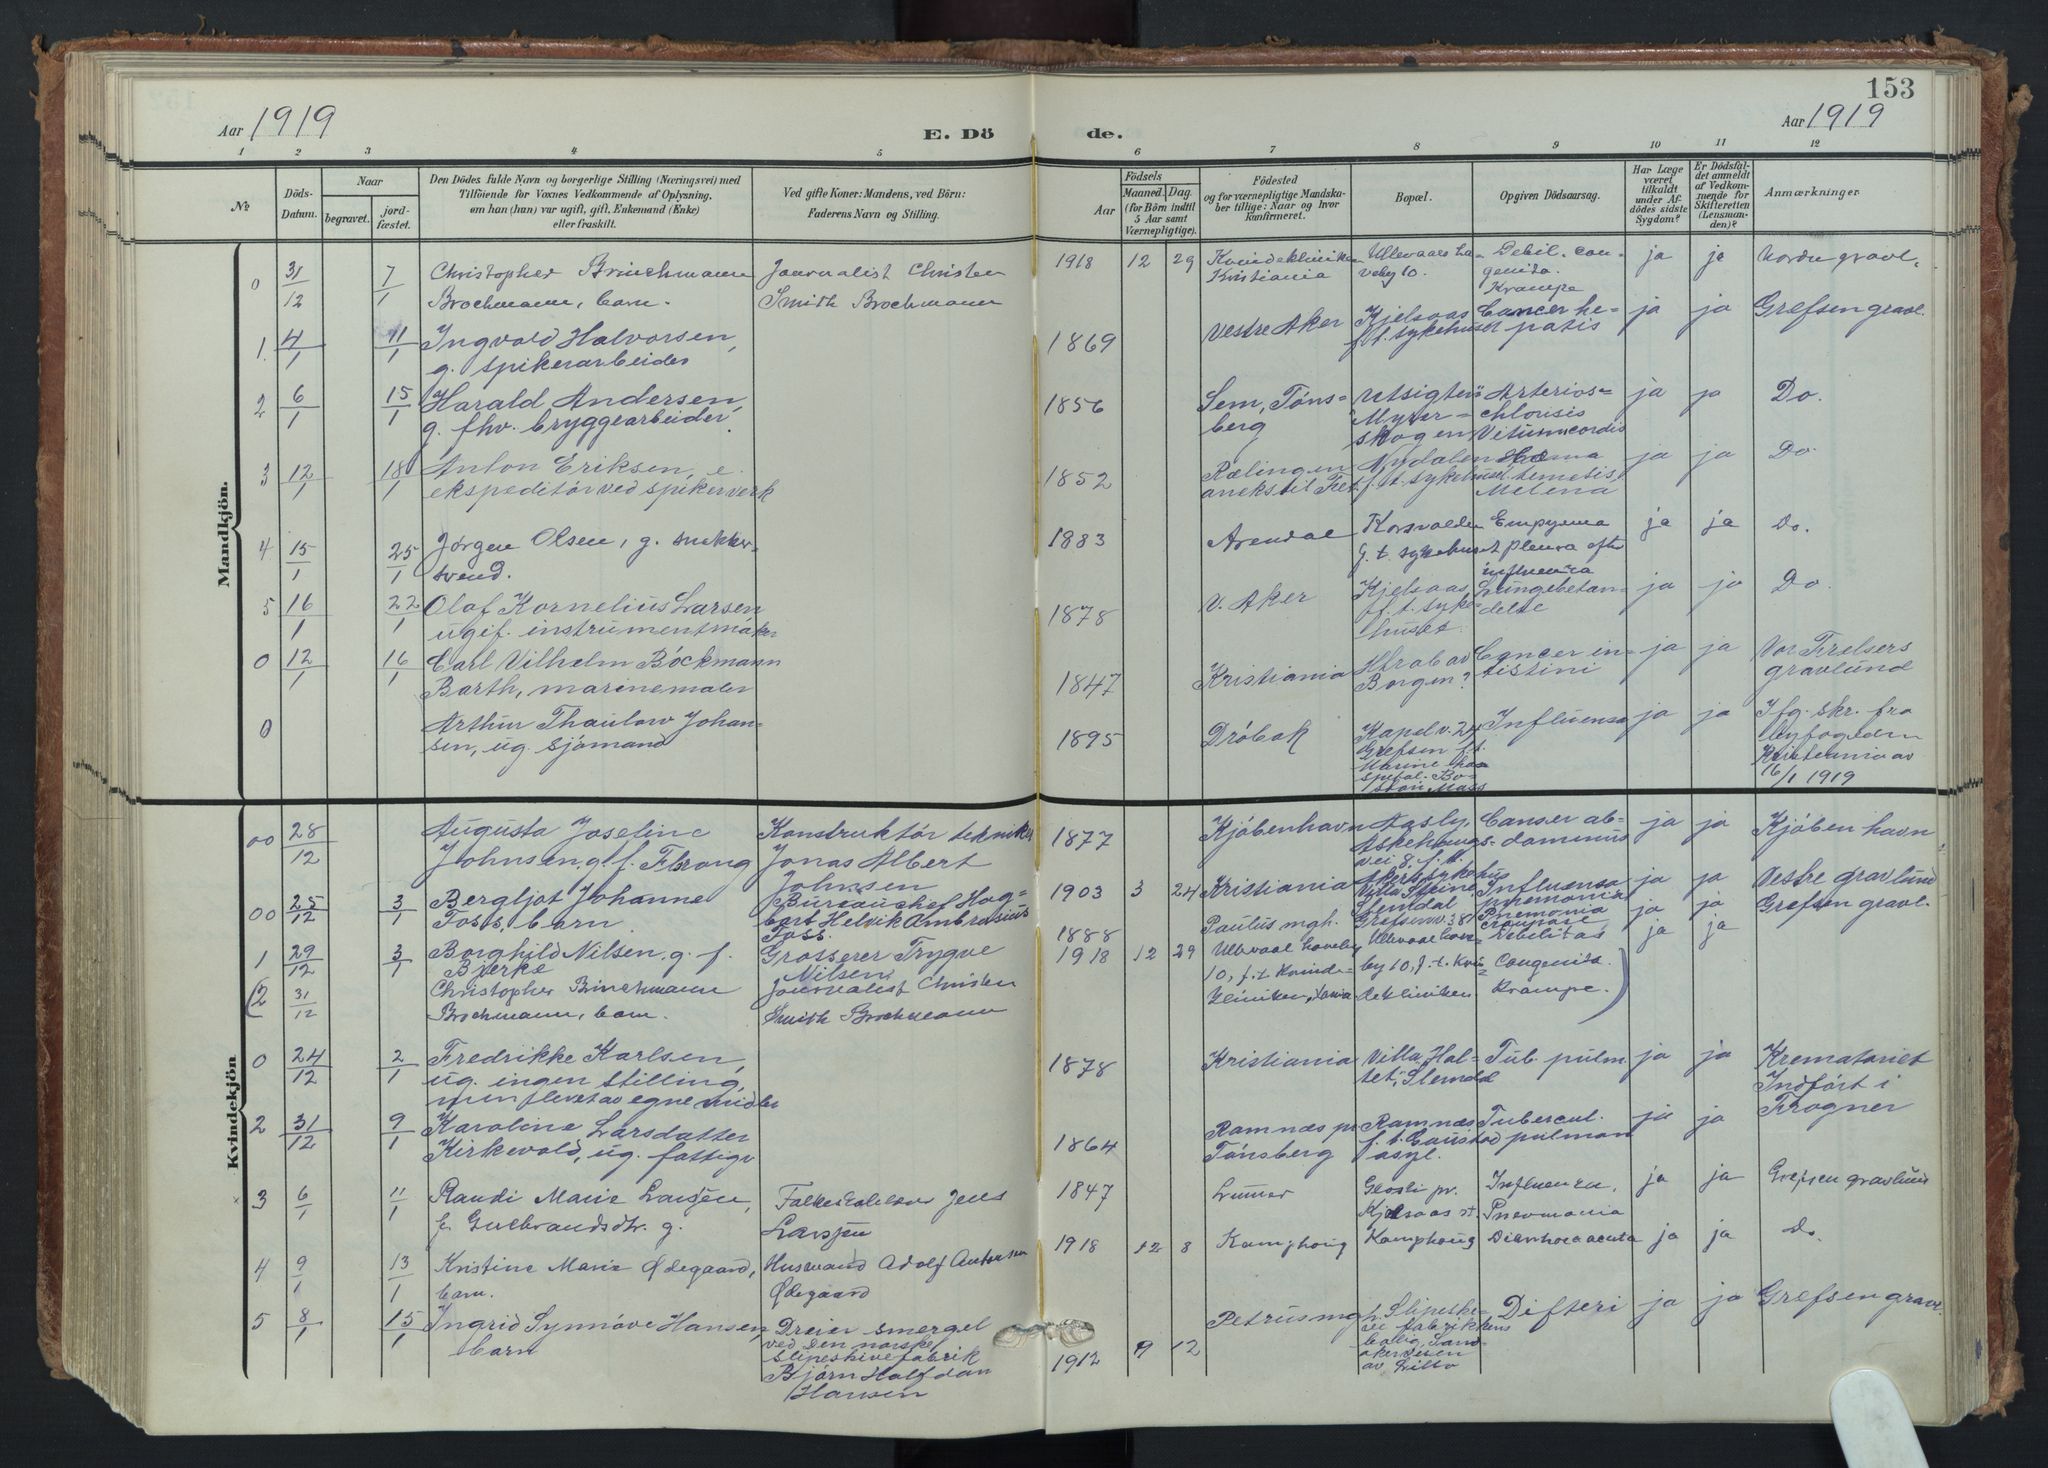 153
Aar 1919
E. Dö
de.
Aar 1919
1 2 3 4 5 6 7 8 9 10 11 12
No.
Döds-
Datum.
Naar
begravet.
jord-
fæstet.
Den Dödes fulde Navn og borgerlige Stilling (Næringsvei) med
Tilföiende for Voxnes Vedkommende af Oplysning,
om han (hun) var ugift, gift, Enkemand (Enke)
eller fraskilt.
Ved gifte Koner: Mandens, ved Börn:
Faderens Navn og Stilling.
Födsels
Aar
Maaned. Dag.
(for Börn indtil
5 Aar samt
Værnepligtige).
Födested
og for værnepligtige Mandska-
ber tillige: Naar og hvor
konfirmeret.
Bopæl.
Opgiven Dödsaarsag.
Har Læge
været
tilkaldt
under Af-
dödes sidste
Sygdom?
Er Dödsfal-
det anmeldt
af Vedkom-
mende for
Skifteretten
(Lensman-
den)?
Anmærkninger
Mandkjön.
0 31/12 7/1 Christopher Brinchmann
Brochmann, barn.
Journalist Christen
Smith Brochmann
1918 12 29 Kvindekliniken
Kristiania
Ullevaals ha-
veby 10.
Debil. con-
genita.
Krampe
ja ja Nordre gravl.
1. 4/1 11/1 Ingvald Halvorsen,
g. spikerarbeider
1869 Vestre Aker
Kjelsaas
f. t. sykehuset
Cancer he-
patis
ja ja Grefsen gravl.
2 6/1 15/1 Harald Andersen,
g. fhv. bryggearbeider.
1856 Sem, Töns-
berg
Utsigten
Myrer-
skogen
Arterios-
chlorisis
Vitium cordis
ja ja Do.
3 12/1 18/1 Anton Eriksen, e.
ekspeditör ved spikerverk
1852 Rælingen
aneks til Fet
Nydalen
f. t. sykehuset
Hæma
temetis
Melena
ja ja Do.
4 15/1 25/1 Jörgen Olsen, g. snekker-
svend.
1883 Arendal
Korsvolden
f. t. sykehuset
Empyema
pleura efter
influenza
ja ja Do.
5 16/1 22/1 Olaf Kornelius Larsen
ugif. instrumentmaker
1878 V. Aker
Kjelsaas
f. t. syke-
huset.
Lungebetæn-
delse
ja ja Do.
0 12/1 16/1 Carl Vilhelm Böckmann
Barth, marinemaler
1847 Kristiania
Borgen?
Cancer in-
tistini
ja ja Vor Frelsers
gravlund
0 Arthur Thaulow Johan-
sen, ug. sjömand
1895 Dröbak
Kapelv. 24
Grefsen f. t.
Marine hos-
pital. Bo-
ston, Mass
Influensa
ja ja Ifg. skr. fra
byfogden
Kristiania av
16/1 1919
Kvindekjön
00 28/12 Augusta Joseline
Johnsen, g. f. Throng
Konstruktör tekniker
Jonas Albert
Johnsen
1877 Kjöbenhavn
Aasly,
Askehaugs-
vei 8. f. t.
Akers sykehus
Canser ab-
dominus
ja ja Kjöbenhavn
00 25/12 3/1 Bergljot Johanne
Foss, barn
Bureauchef Hag-
bart Helvik Ambrosius
Foss.
1903 3 24 Kristiania
Villa Steine
Slemdal
Influensa
pnemonia
ja ja Vestre gravlund
1 29/12 3/1 Borghild Nilsen, g. f.
Bjerke
Grosserer Trygve
Nilsen
1888 Paulus mgh.
Grefsenv. 38
Pnemonia
croupose
ja ja Grefsen gravl.
(2 31/12 Christopher Brinchmann
Brochmann, barn.
Journalist Christen
Smith Brochmann
1918 12 29 Ullevaal haveby
10, f. t. Kvinde-
kliniken, Kania
Ullevaal have-
by 10, f. t. Kvin-
dekliniken
Debilitas
Congenita.
Krampe.
ja ja )
0 24/12 2/1 Fredrikke Karlsen,
ug. ingen stilling,
men levet av egne midler
1878 Kristiania
Villa "Hal-
tet", Slemdal
Tub. pulm
ja ja Krematoriet
Indfört i
Frogner
2 31/12 9/1 Karoline Larsdatter
Kirkevold, ug. fattigv
1864 Ramnæs pr
Tönsberg
Ramnæs
f. t. Gaustad
asyl.
Tubercul.
pulman
ja ja
3 6/1 11/1 Randi Marie Larsen,
f. Gulbrandsdtr. g.
Jens
Larsen
1847 Lunner
pr.
Kjelsaas st.
Influenza,
Pnevmonia
ja ja Grefsen gravlund
4 9/1 13/1 Kristine Marie Ødegaard,
barn.
Husmand Adolf Antonsen
Ødegaard
1918 12 8 Kamphoug Kamphoug Diarrhoea acuta ja ja Do.
5 8/1 15/1 Ingrid Synnöve Hansen,
barn
Dreier smergel
ved Den norske
slipeskivefabrik
Björn Halfdan
Hansen
1912 9 12 Petrus mgh.
Slipeski-
vefabrikkens
bolig, Sand-
akerveien
av Lillo
Difteri
ja ja Grefsen gravl.